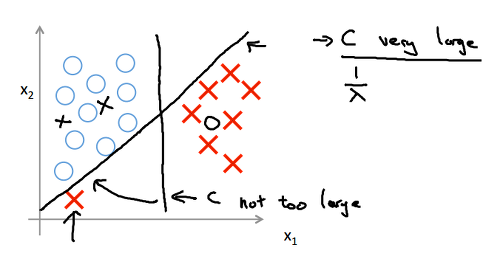 → C very large
1
λ
x2
← C not too large
x1